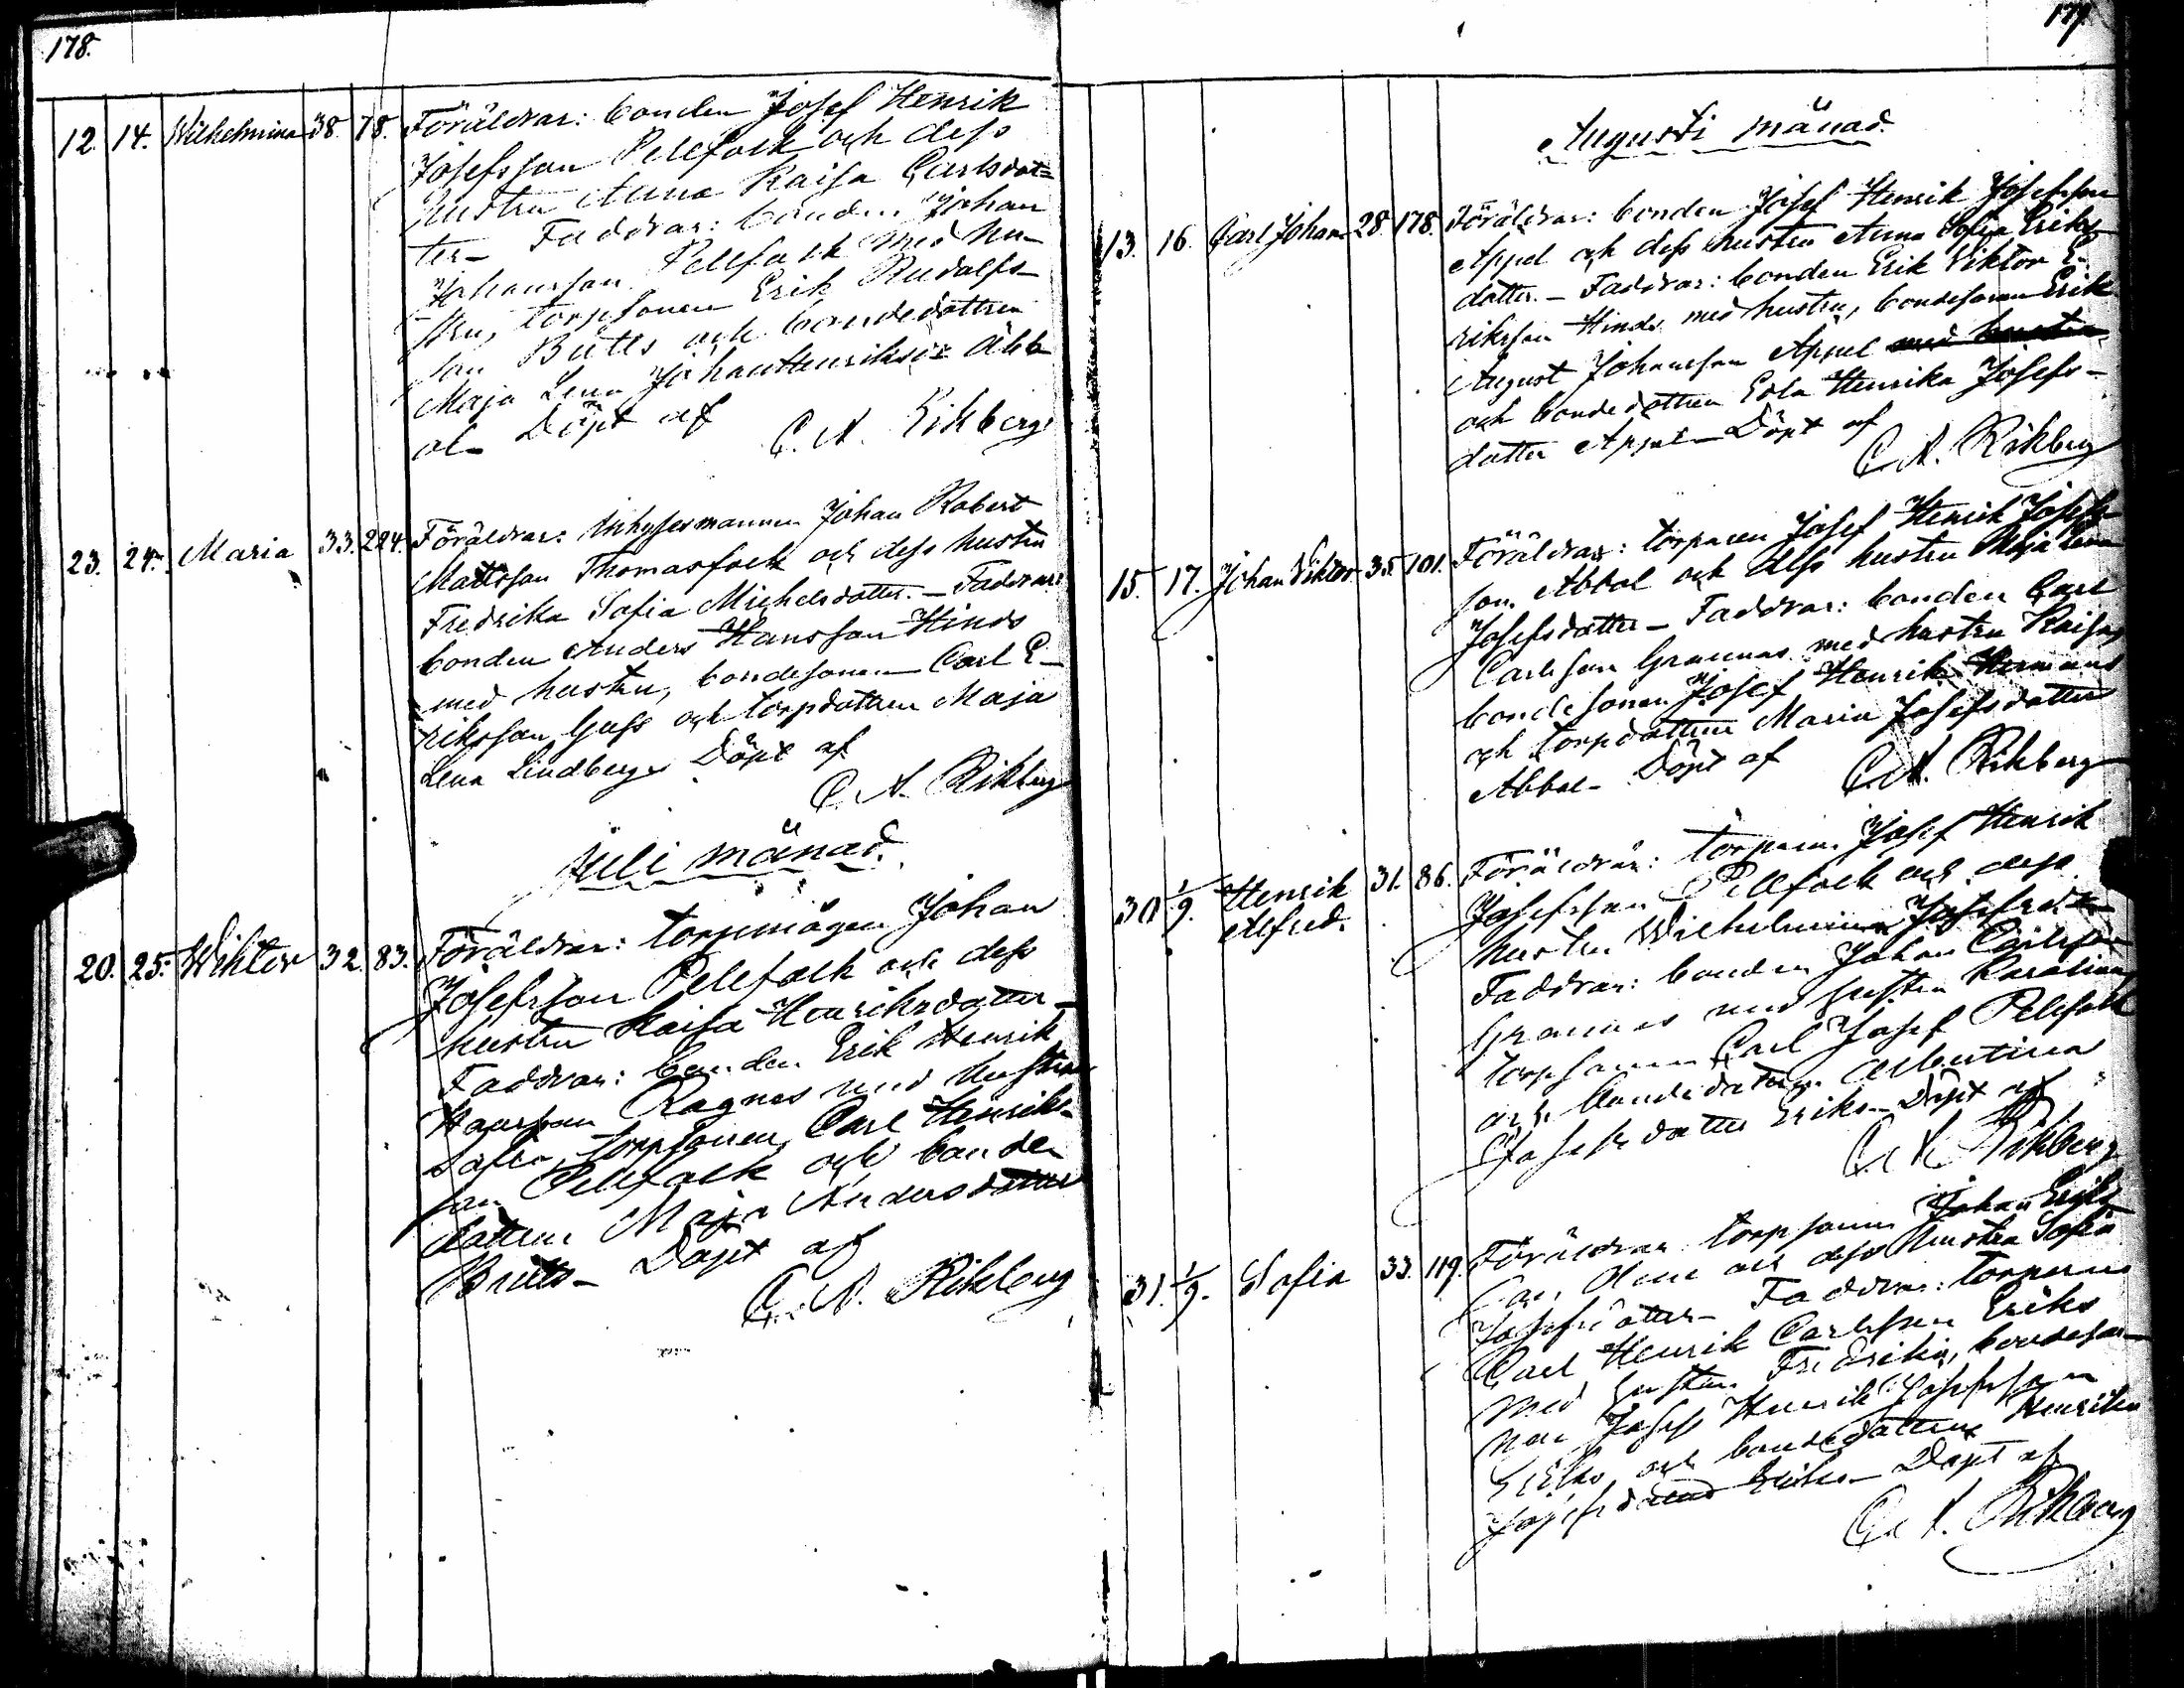 178.
12. 14. Wilhelmina 38. 78. Föräldrar: bonden Josef Henrik
Josefsson Pellfolk och dess
hustru Anna Kaisa Carlsdot=
ter – Faddrar: bonden Johan
Johansson Pellfolk med hu-
stru, torpsonen Erik Rudolfs-
son Butts och bondedottren
Maja Lena Johan Henriks
Döpt af
C. A. Rikberg
23. 24. Maria 33. 224. Föräldrar: Inhysesmannen Johan Robert
Mattsson Thomasfolk och dess hustru
Fredrika Sofia Michelsdotter. – Faddrar:
bonden Anders Hansson Hinds
med hustru, bondesonen Carl E-
riksson Guss och torpdottren Maja
Lena Lindberg. Döpt af
C. A. Rikberg
Juli månad.
20. 25. Wiktor 32. 83. Föräldrar: torpmågen Johan
Josefsson Pellfolk och dess
hustru Kaisa Henriksdotter –
Faddrar: bonden Erik Henrik
Ragnas med hustru
Sofia, torpsonen Carl Henriks-
son Pellfolk och bonde
dottren Maja Andersdotter
Butts – Döpt af
C. A. Rikberg
179.
Augusti månad.
13. 16. Carl Johan 28. 178. Föräldrar: bonden Josef Henrik Josefsson
Appel och dess hustru Anna Sofia Eriks-
dotter. – Faddrar: bonden Erik Viktor E-
riksson Hinds med hustru, bondesonen Erik
August Johansson Appel med hustru
och bondedottren Eva Henrika Josefs-
dotter Appel – Döpt af
C. A. Rikberg
15. 17. Johan Viktor 35. 101. Föräldrar: torparen Josef Henrik Josefs-
son Abbal och dess hustru Maja Lena
Josefsdotter – Faddrar: bonden Carl
Carlsson Grannas med hustru Kaisa,
bondesonen Josef Henrik Hermans
och torpdottren Maria Josefsdotter
Abbal – Döpt af
C. A. Rikberg
30 1/9. Henrik 31. 86. Föräldrar: torparen Josef Henrik
Alfred.
Josefsson Pellfolk och dess
hustru Wilhelmina Josefsdotter
Faddrar: bonden Johan Carlsson
Grannas med hustru Karolina,
torpsonen Carl Josef Pellfolk
och bondedottren Albertina
Josefsdotter Eriks – Döpt af
C. A. Rikberg
31. 1/9. Sofia 33. 119. Föräldrar torpsonen Johan Eriks-
son och dess hustru Sofia
Josefsdotter – Faddrar: torparen
Carl Henrik Carlsson Eriks
med hustru Fredrika, bondeso-
nen Josef Henrik Josefsson
Eriks och bondedottren Henrika
Josefsdotter Eriks – Döpt af
C. A. Rikberg